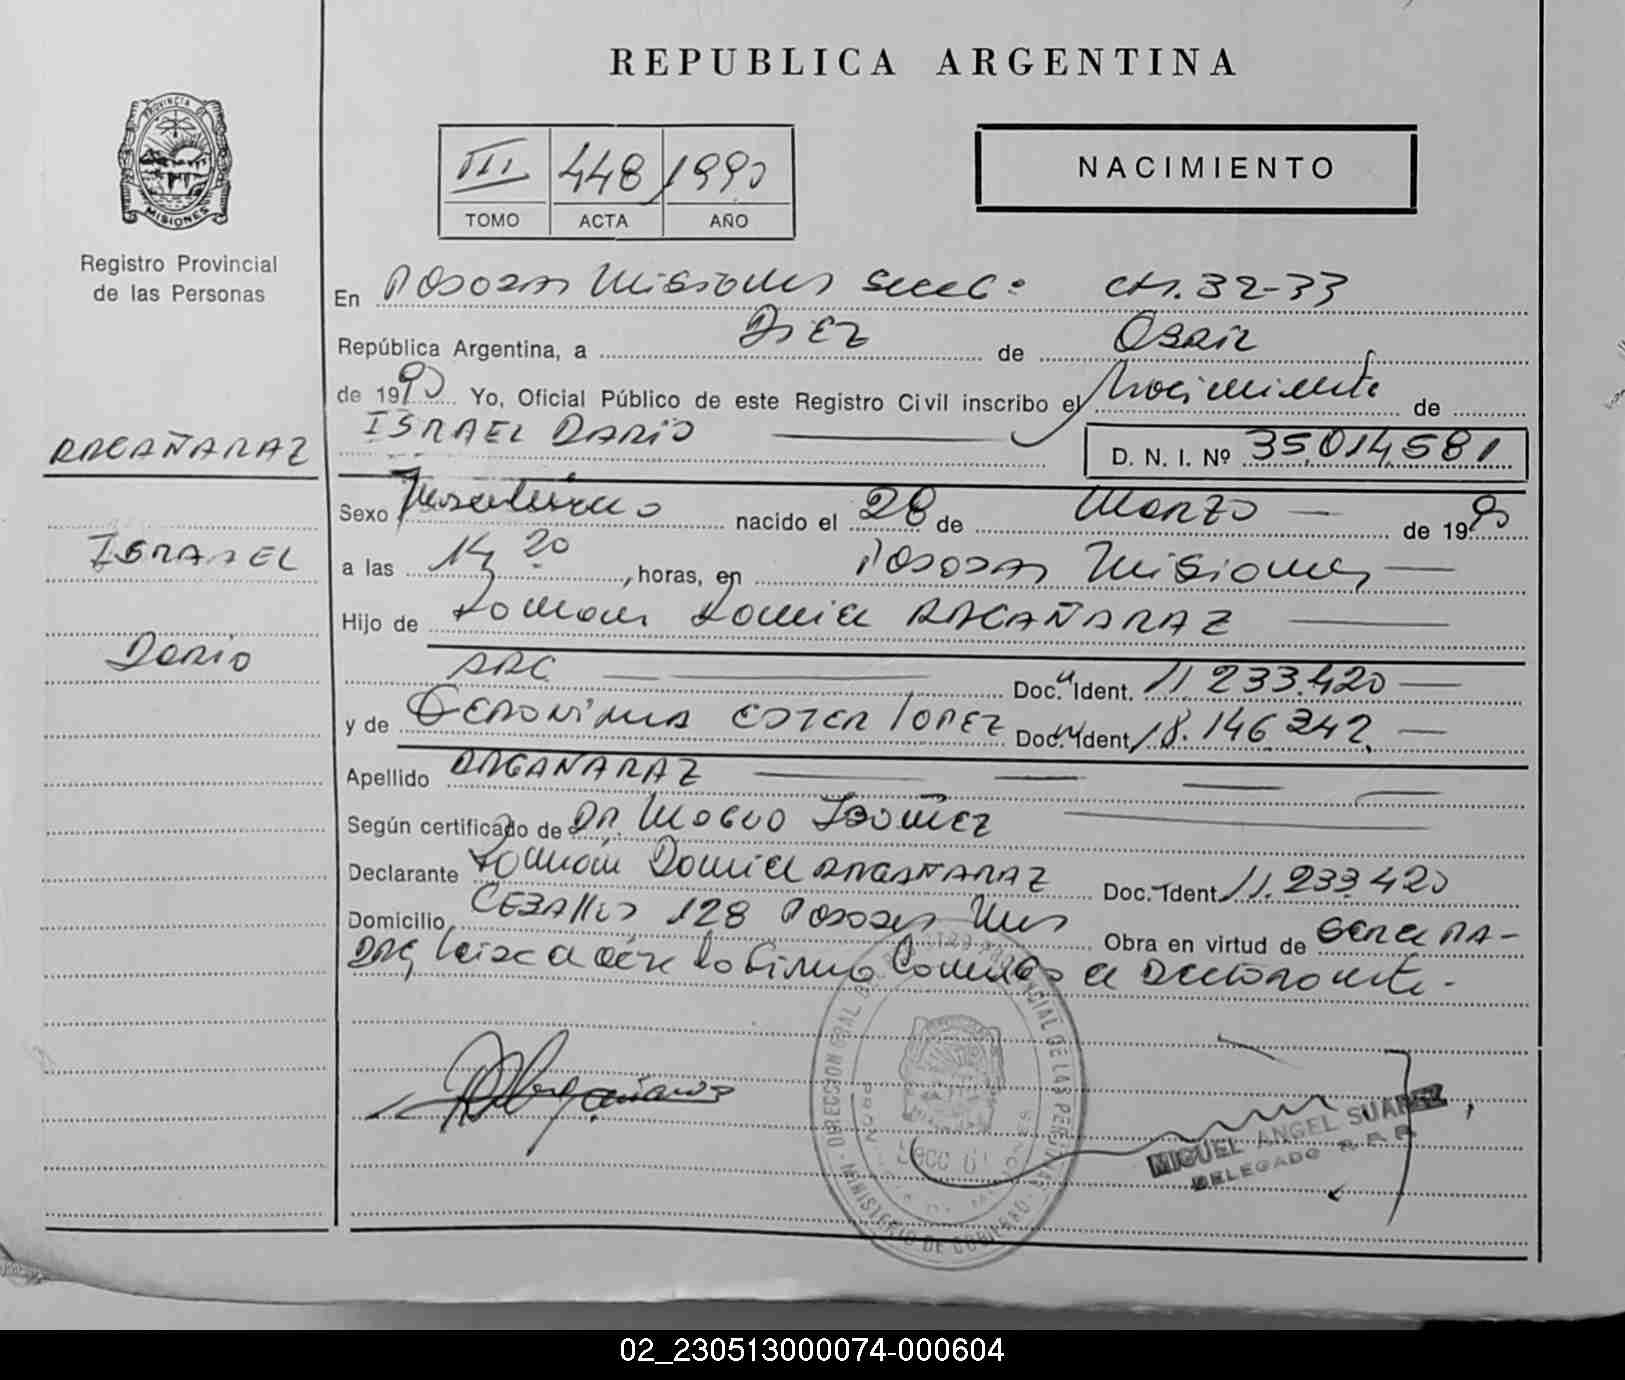 REPUBLICA ARGENTINA
PROVINCIA DE
MISIONES
Registro Provincial
de las Personas
III 448 1990
TOMO ACTA AÑO
NACIMIENTO
En Posadas Misiones Secc 32-33
República Argentina, a Diez de Abril
de 1990 Yo, Oficial Público de este Registro Civil inscribo el Nacimiento de
ISRAEL DARIO
D. N. I. Nº 35.014.581
ARGAÑARAZ
ISRAEL
Dario
Sexo Masculino nacido el 28 de Marzo de 1990
a las 14,20 horas, en Posadas Misiones
Hijo de Roman Daniel ARGAÑARAZ
ARG Doc. Ident. 11.233.420
y de GERONIMA ESTER LOPEZ Doc. Ident. 18.146.242
Apellido ARGAÑARAZ
Según certificado de DR.
Declarante Román Daniel ARGAÑARAZ Doc. Ident. 11.233.420
Domicilio 128 Posadas Mnes Obra en virtud de
ARG el acta la firma el Declarante.
DIRECCION GRAL. DEL REGISTRO PROVINCIAL DE LAS PERSONAS
MINISTERIO DE GOBIERNO
MIGUEL ANGEL SUAREZ
DELEGADO
02_230513000074-000604